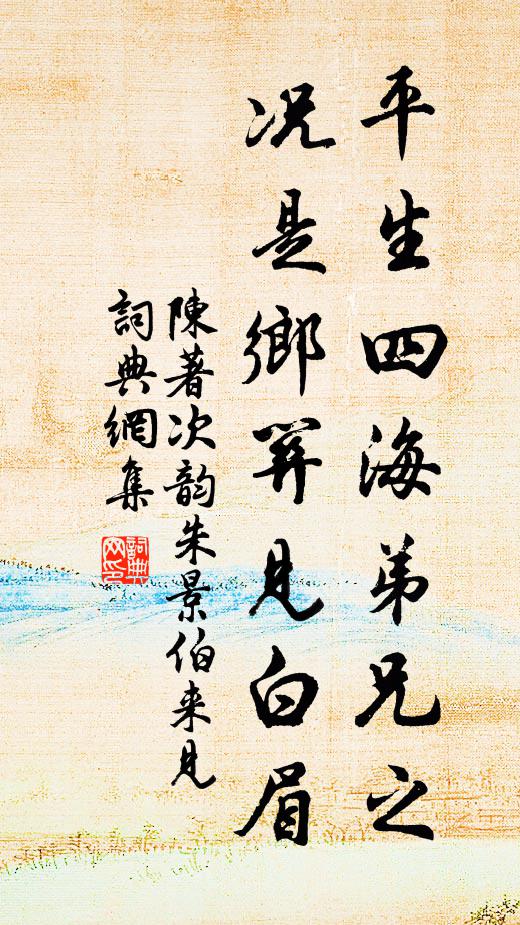 平生四海弟兄之
况是鄉關見白眉
陳著次韵朱景伯来見
詞典網集
詞典网印